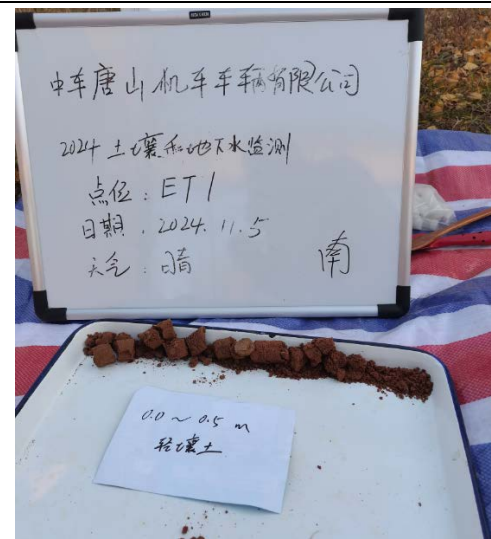 中车唐山机车车辆有限公司
2024土壤和地下水监测
点位：ET1
日期：2024.11.5
天气：晴
南
0.0~0.5 m
轻壤土